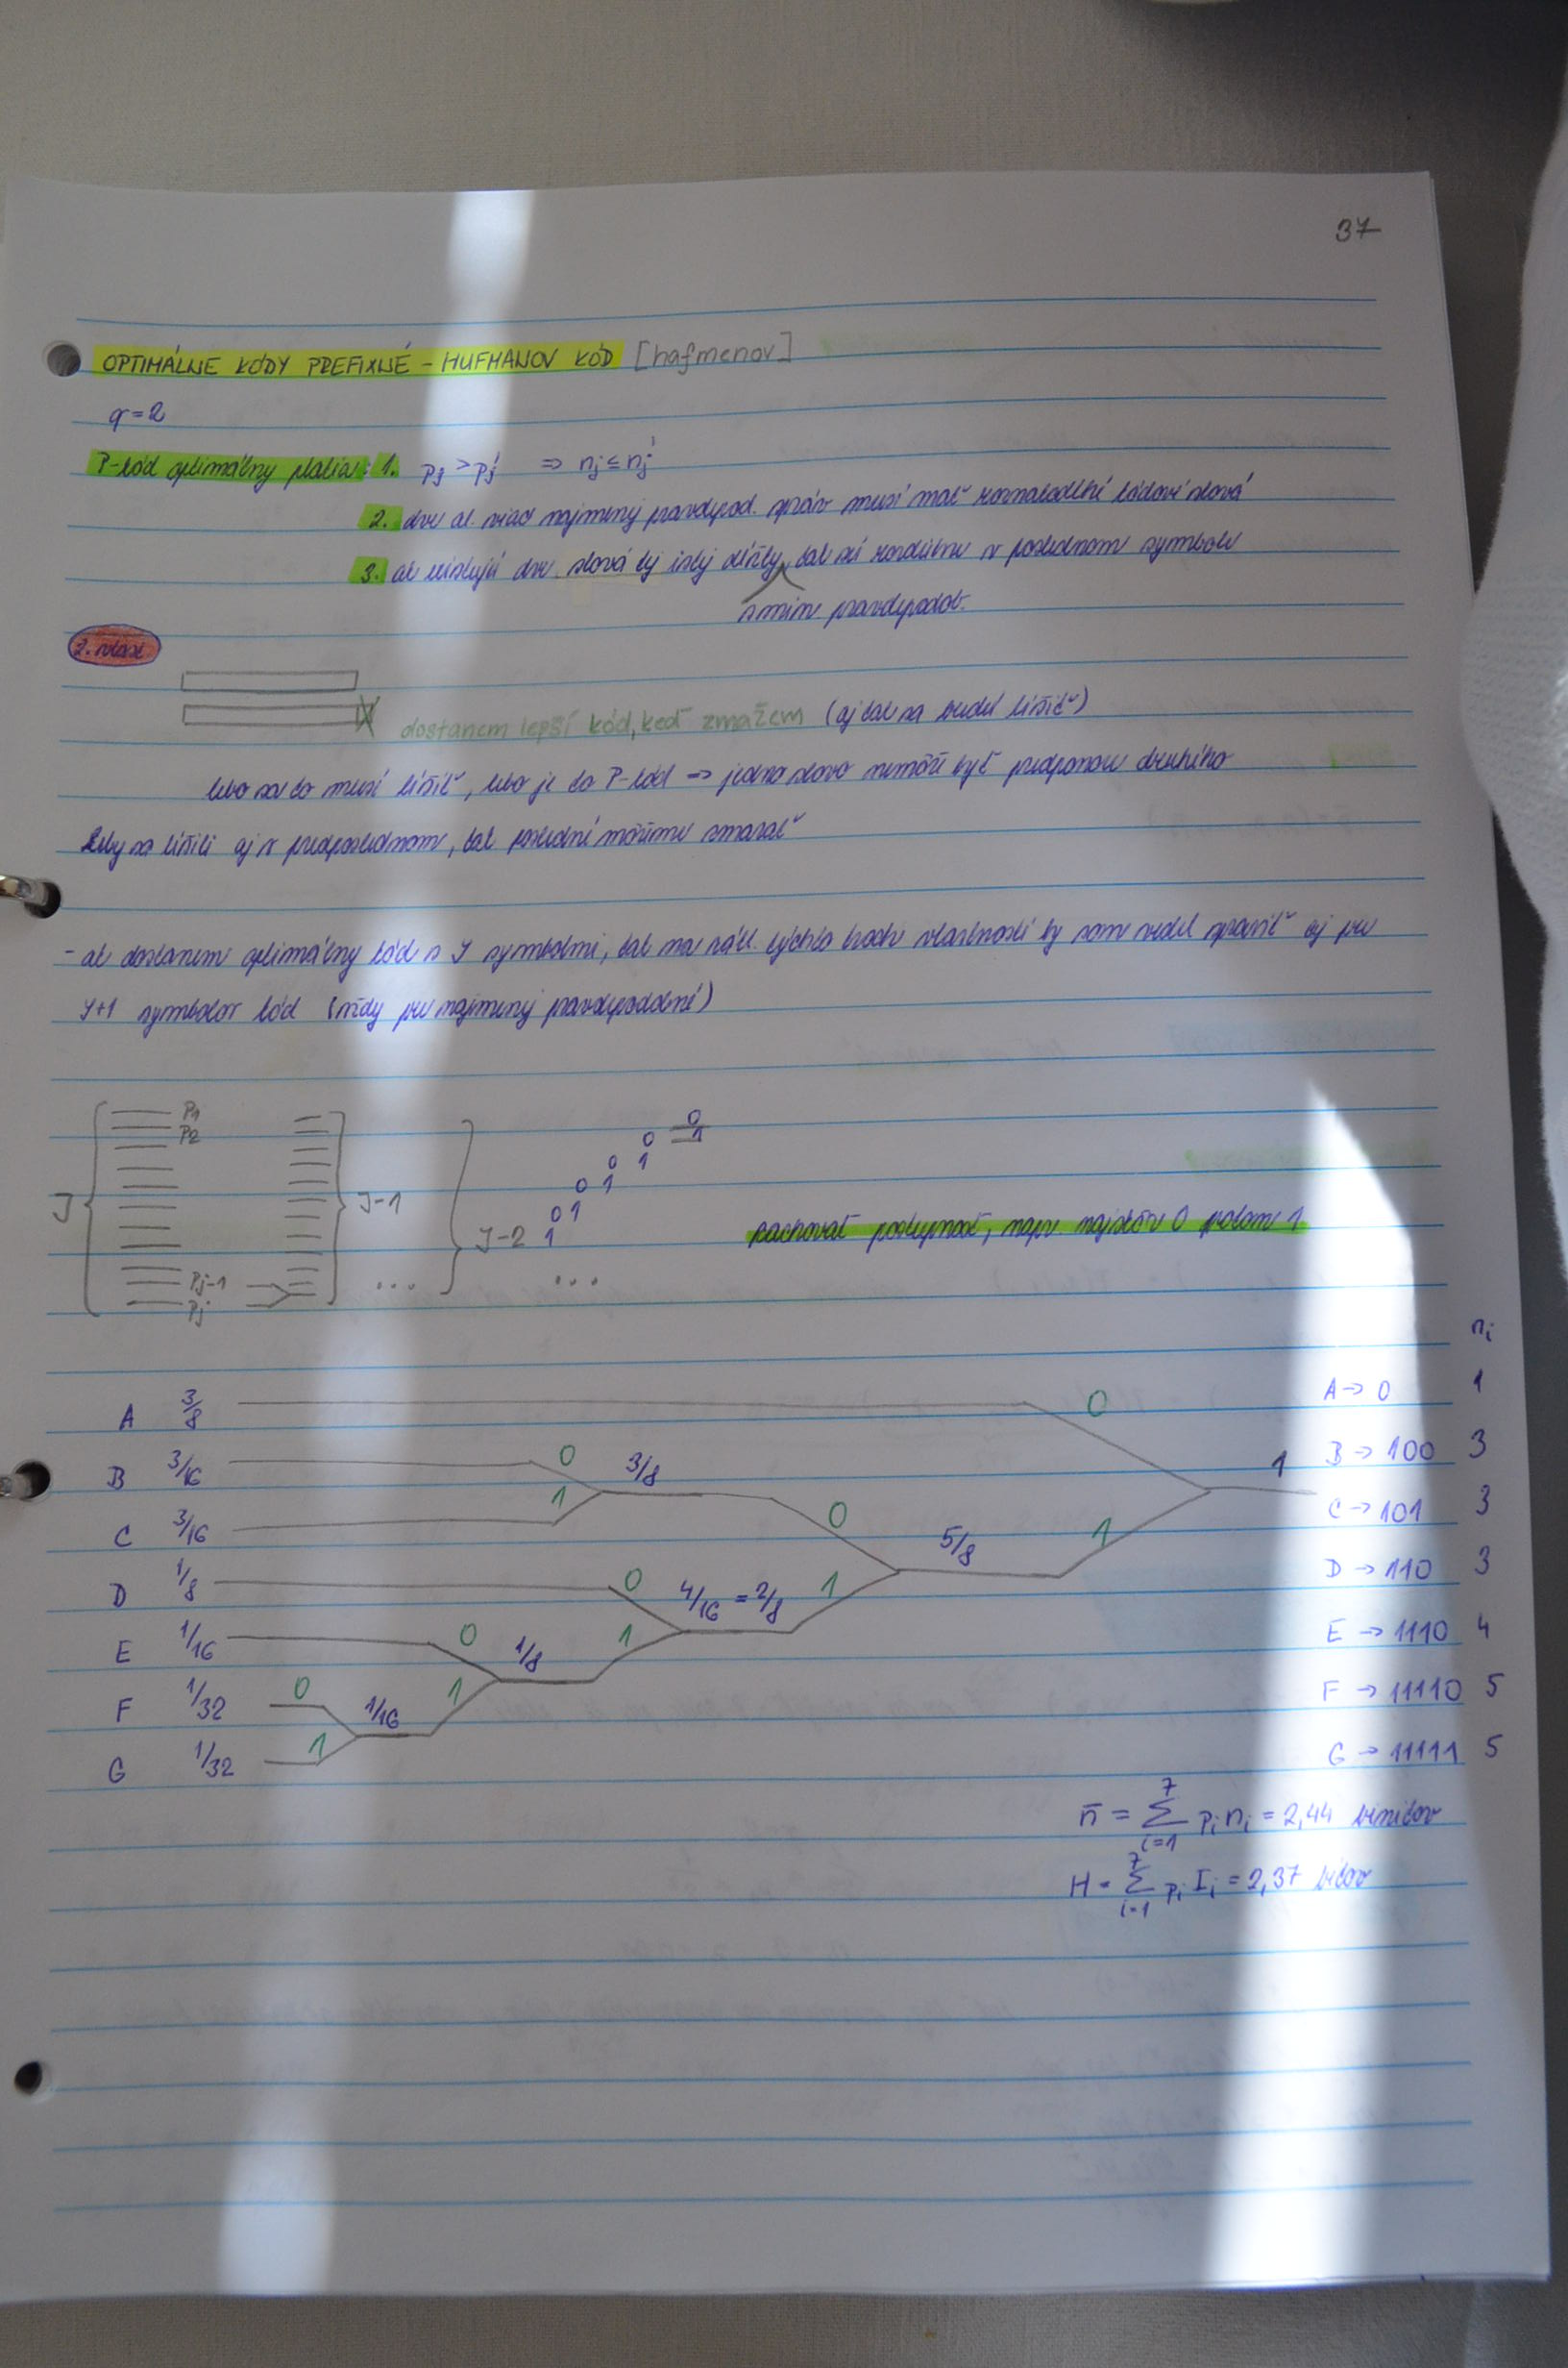 37
OPTIMÁLNE KÓDY PREFIXNÉ - HUFMANOV KÓD [hafmenov]
q=2
P-kód optimálny platia: 1. pj > pj' ⇒ nj ≤ nj'
2. dve al. viac najmenej pravdepod. správ musí mať rovnakodlhé kódové slová
3. ak existujú dve slová tej istej dĺžky, tak sú rozdielne v poslednom symbole
s min pravdepodob.
2. vlast
dostanem lepší kód, keď zmažem (aj tak sa budú líšiť)
lebo sa to musí líšiť, lebo je to P-kód ⇒ jedno slovo nemôže byť predponou druhého
Keby sa líšili aj v predposlednom, tak posledné môžeme zmazať
- ak dostanem optimálny kód s J symbolmi, tak na zákl. týchto troch vlastností by som vedel spraviť aj pre
J+1 symbolov kód (vždy pre najmenej pravdepodobné)
P1
P2
J
Pj-1
Pj
J-1
...
J-2
0
0 1
0 1
0 1
0 1
1
...
zachovať postupnosť, napr. najskôr 0 potom 1
ni
A 3/8 0 A → 0 1
B 3/16 0 3/8 1 B → 100 3
C 3/16 1 0 C → 101 3
D 1/8 0 4/16 = 2/8 1 5/8 1 D → 110 3
E 1/16 0 1/8 1 E → 1110 4
F 1/32 0 1/16 1 F → 11110 5
G 1/32 1 G → 11111 5
n̄ = ∑ i=1 7 pi ni = 2,44 binitov
H = ∑ i=1 7 pi Ii = 2,37 bitov